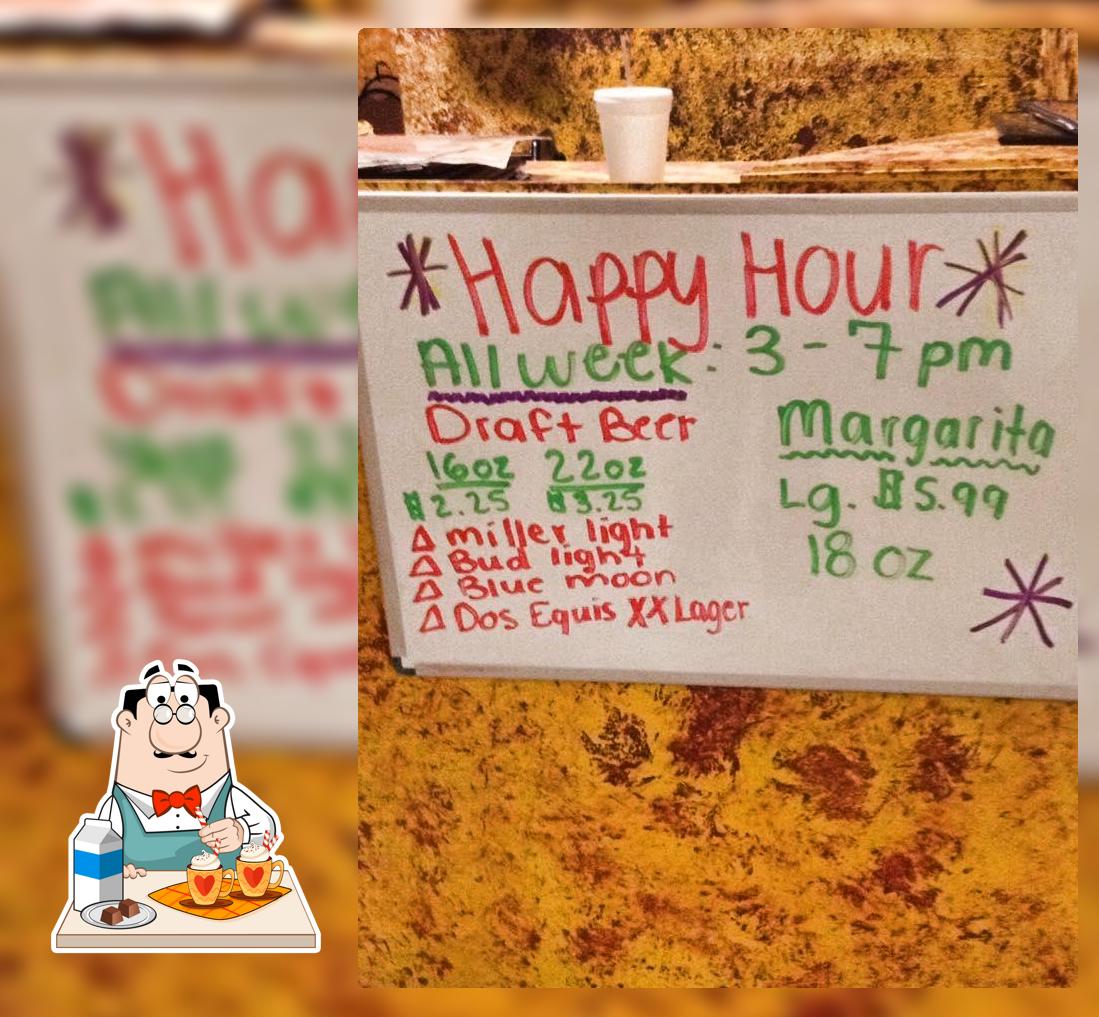 Happy Hour
All week: 3 - 7 pm
Draft Beer
16oz 22oz
$2.25 $3.25
△ miller light
△ Bud light
△ Blue moon
△ Dos Equis XX Lager
Margarita
Lg. $5.99
18 oz